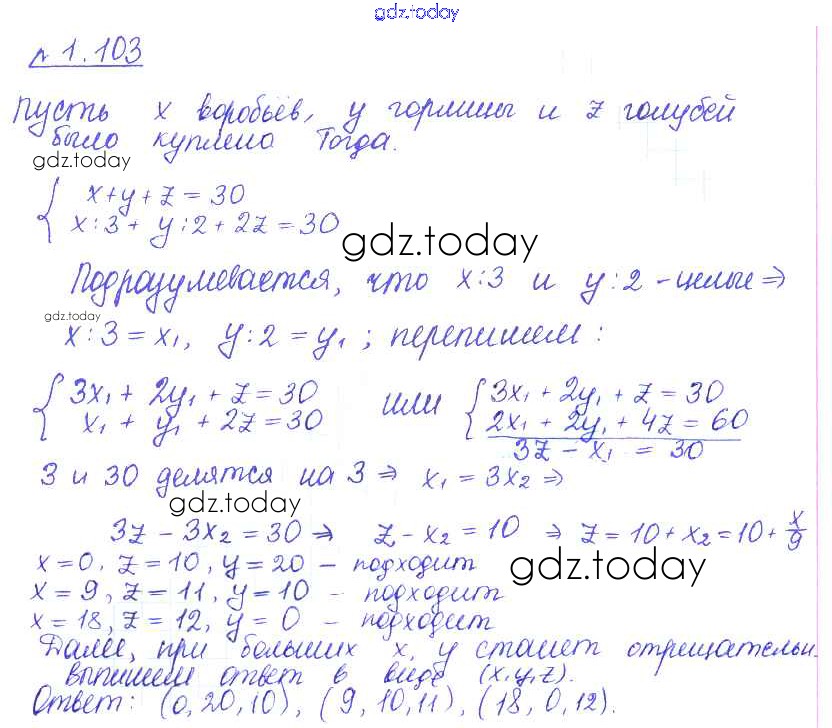 gdz.today
№ 1.103
Пусть x воробьёв, y горлицы и z голубей
было куплено Тогда.
gdz.today
{ x+y+z=30
x:3+ y:2+2z=30
gdz.today
Подразумевается, что x:3 и y:2 -целые ⇒
gdz.today
x:3=x₁, y:2=y₁; перепишем:
{ 3x₁+2y₁+z=30 или { 3x₁+2y₁+z=30
x₁+y₁+2z=30 2x₁+2y₁+4z=60
3z-x₁=30
3 и 30 делятся на 3 ⇒ x₁=3x₂ ⇒
gdz.today
3z-3x₂=30 ⇒ z-x₂=10 ⇒ z=10+x₂=10+x/9
x=0, z=10, y=20 - подходит
gdz.today
x=9, z=11, y=10 - подходит
x=18, z=12, y=0 - подходит
Далее, при больших x, y станет отрецательн.
выпишем ответ в виде (x,y,z).
Ответ: (0,20,10), (9,10,11), (18,0,12).